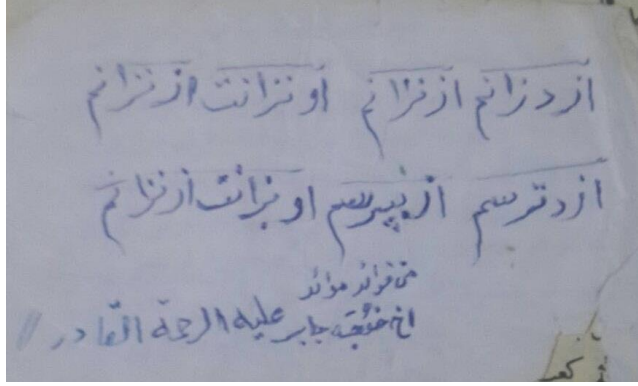 از دزانم از نزانم او نزانت از نزانم
از دترسم از نپرسم او بزانت از نزانم
من فوائد موائد
اخ جابر علیه الرحمة القادر